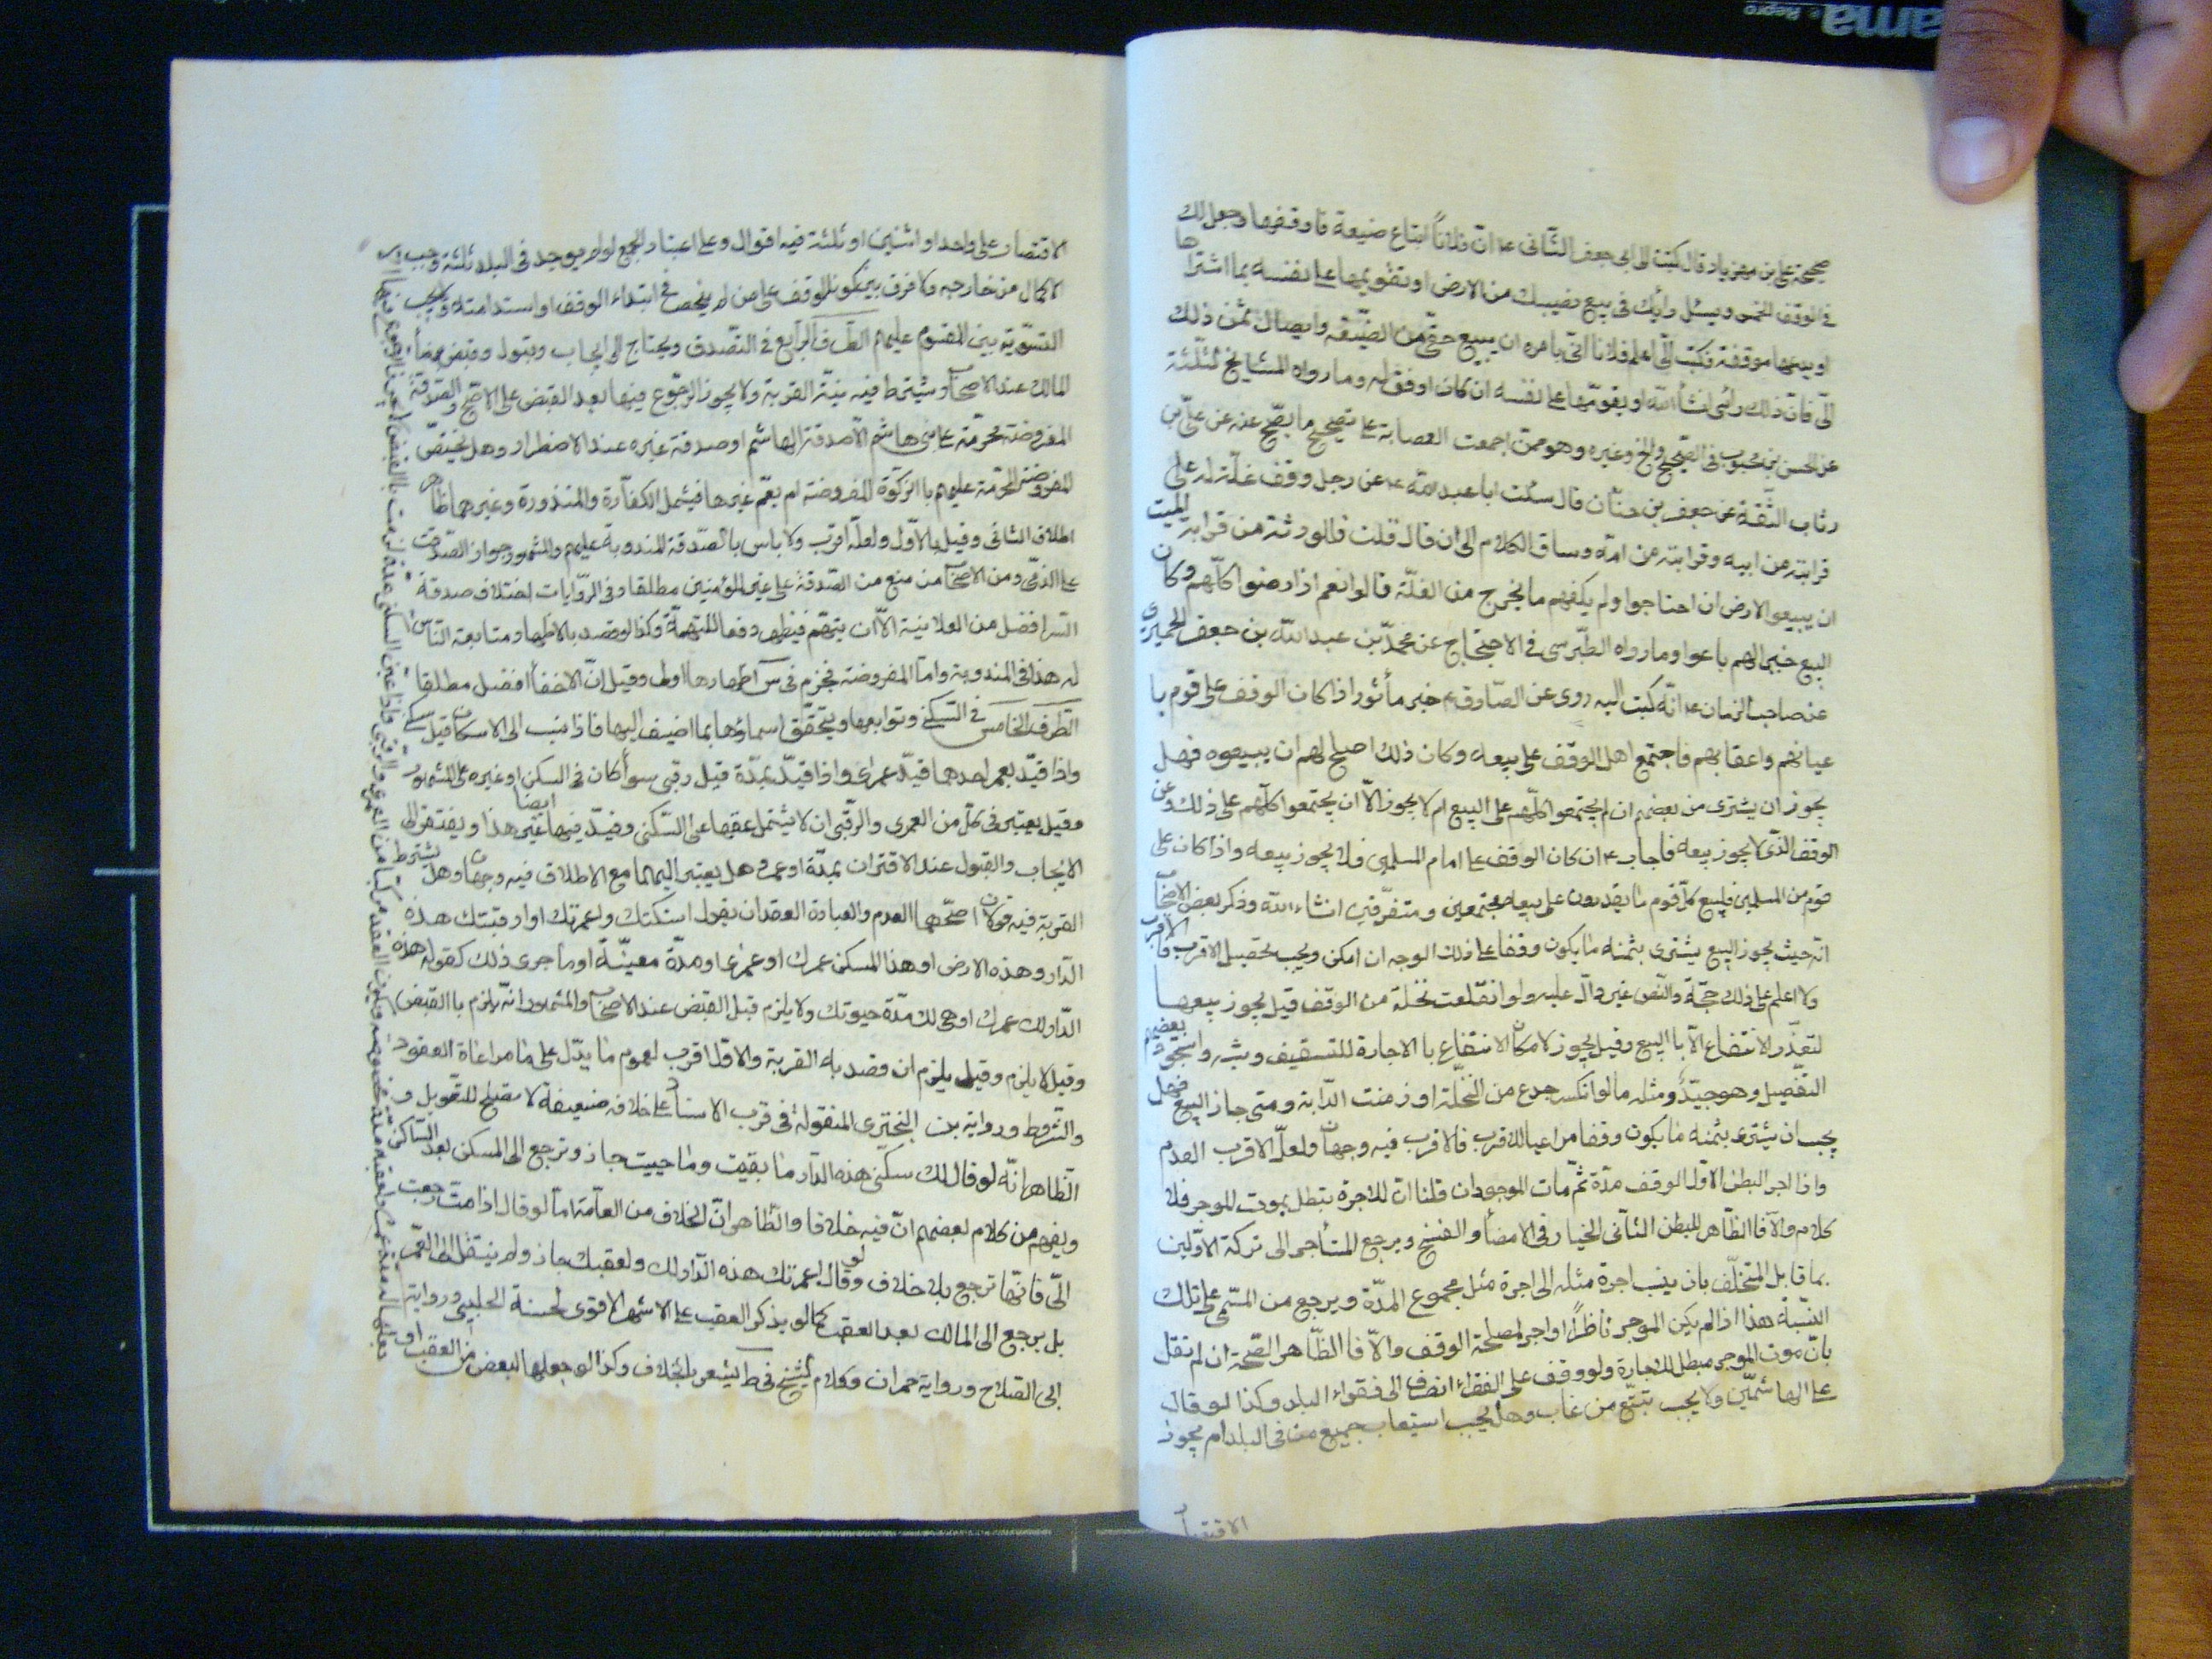 صحيحة علي بن مهزيار قال كتبت الى ابي جعفر الثاني ع ان فلاناً ابتاع ضيعة فاوقفها وجعل لك
في الوقف الخمس ويسئل رأيك في بيع نصيبك من الارض او تقويمها على نفسه بما اشتراها
او يدعها موقفة فكتب الّى اعلم فلانا انّى بامره ان يبيع حقّى من الضيّعة وايصال ثمن ذلك
الّى فانّ ذلك رأى انشأ الله او يقوّمها على نفسه ان كان اوفق له وما رواه المشايخ الثلثة
عن الحسن بن محبوب في الصّحيح وغيره وهو ممن اجمعت العصابة على تصحيح ما يصّح عنه عن علّى بن
رئاب الثّقة عن جعفر بن حنّان قال سئلت ابا عبد الله ع عن رجل وقف غلّة له على
قرابته من ابيه وقرابته من امّه وساق الكلام الى ان قال قلت فللورثة من قرابة الميت
ان يبيعوا الارض ان احتاجوا ولم يكفهم ما يخرج من الغلّة قال نعم اذا رضوا كلّهم وكان
البيع خيرا لهم باعوا وما رواه الطّبرسى في الاحتجاج عن محمّد بن عبد الله بن جعفر الحميرى
عن صاحب الزمان ع انّه كتب اليه روى عن الصّادق ع خبر مأثور اذا كان الوقف على قوم با
عيانهم واعقابهم فاجتمع اهل الوقف على بيعه وكان ذلك اصلح لهم ان يبيعوه فهل
يجوز ان يشترى من بعضهم ان لم يجتمعوا كلّهم على البيع ام لا يجوز الّا ان يجتمعوا كلّهم على ذلك وعن
الوقف الذّى لا يجوز بيعه فاجاب ع ان كان الوقف على امام المسلمين فلا يجوز بيعه واذا كان على
قوم من المسلمين فليبع كلّ قوم ما يقدرون على بيعه مجتمعين ومتفرّقين انشاء الله وذكر بعض الاصحاب
انّه حيث يجوز البيع يشترى بثمنه ما يكون وقفا على ذلك الوجه ان امكن ويجب تحصيل الاقرب فالاقرب
ولا اعلم على ذلك حجّة والنّص غير دالّ عليه ولو انقلعت نخلة من الوقف قيل يجوز بيعها
لتعذّر الانتفاع الّا با البيع وقيل لا يجوز لامكان الانتفاع با الاجارة للتسقيف وشبهه واستجود بعضهم
التفّصيل وهو جيّد ومثله ما لو انكسر جدع من النخّلة او زمنت الدّابة ومتى جاز البيع فهل
يجب ان يشترى بثمنه ما يكون وقفا مراعيا للاقرب فالاقرب فيه وجهان ولعلّ الاقرب العدم
واذا اجر البطن الاوّل الوقف مدّة ثمّ مات الموجر فان قلنا انّ الاجرة تبطل بموت الموجر فلا
كلام والّا فا الظّاهر للبطن الثّانى الخيار في الامضأ والفسخ ويرجع المستأجر الى تركة الاوّلين
بما قابل المتخلّف بان ينسب اجرة مثله الى اجرة مثل مجموع المدّة ويرجع من المسّمى على تلك
النسّبة هذا اذا لم يكن الموجر ناظراً او اجر لمصلحة الوقف والّا فا الظّاهر الصّحة ان لم نقل
بانّ موت الموجر مبطل للاجارة ولو وقف على الفقراء انصرف الى فقراء البلد وكذا لو قال
على الهاشميّين ولا يجب تتبّع من غاب وهل يجب استيعاب جميع من في البلد ام يجوز
الاقتصار
الاقتصار على واحد او اثنين او ثلثة فيه اقوال وعلى اعتبار الجمع لو لم يوجد في البلد ثلثة وجب
الاكمال من خارجه ولا فرق بين كون الوقف على من لم ينحصر في ابتداء الوقف او استدامته ولا يجب
التسّوية بين المقسوم عليهم الطّرف الرّابع في التّصدق ويحتاج الى ايجاب وقبول وقبض برضأ
المالك عند الاصحاب ويشترط فيه نيّة القربة ولا يجوز الرجّوع فيها بعد القبض على الاصّح والصّدقة
المفروضة محرّمة على بنى هاشم الّا صدقة الهاشم او صدقة غيره عند الاضطرار وهل يختصّ
المفروضة المحرّمة عليهم با الزكوة المفروضة ام يعّم غيرها فيشمل الكفّارة والمنذورة وغيرهما ظاهر
اطلاق الثانى وقيل بالاوّل ولعلّه اقرب ولا باس با الصّدقة المندوبة عليهم والمشهور جواز الصّدقة
على الذمّى ومن الاصحاب من منع من الصّدقة على غير المؤمنين مطلقا وفي الرّوايات اختلاف صدقة
السّر افضل من العلانية الّا ان يتهّم فيظهر دفعا للتهمة وكذا لو قصد بالاظهار متابعة الناّس
له هذا في المندوبة وامّا المفروضة فجزم في س اظهارها اولى وقيل انّ الاخفأ افضل مطلقا
الطّرف الخامس في السّكنى وتوابعها ويتحقّق اسماؤها بما اضيف اليها فاذا نسب الى الاسكان قيل سكنى
واذا قيّد بعمر احدهما قيل عمرى واذا قيّد بمدّة قيل رقبى سوأ كان في السكن او غيره على المشهور
وقيل يعتبر في كلّ من العمرى والرقّبى ان لا يشتمل عقدها على السّكنى وقيل فيها ايضا غير هذا ويفتقر الى
الايجاب والقبول عند الاقتران بمدّة او عمر وهل يعتبر اليهما مع الاطلاق فيه وجهان وهل يشترط
القربة فيه قولان اصحّهما العدم والعبارة العقد ان يقول اسكنتك واعمرتك او ارقبتك هذه
الدّار وهذه الارض او هذا المسكن عمرك او عمرى او مدّة معيّنة او ما جرى ذلك كقوله هذه
الدّار لك عمرك او هى لك مدّة حيوتك ولا يلزم قبل القبض عند الاصحاب والمشهور انّه يلزم با القبض
وقيل لا يلزم وقيل يلزم ان قصد به القربة والاوّل اقرب لعموم ما يدّل على مراعاة العقود
والشّروط ورواية بن البخترى المنقولة في قرب الاسناد على خلافه ضعيفة لا تصلح للتّعويل و
الظّاهر انّه لو قال لك سكنى هذه الدّار ما بقيت وما حييت جاز وترجع الى المسكن بعد موت السّاكن
ويفهم من كلام بعضهم انّ فيه خلافا والظّاهر انّ الخلاف من العاّمة امّا لو قال اذا متّ رجعت
الّى فانّها ترجع بلا خلاف ولو قال اعمرتك هذه الدّار لك ولعقبك جاز ولم ينتقل الى المعّمر
بل يرجع الى المالك بعد العقب كما لو لم يذكر العقب على الاشهر الاقوى لحسنة الحلبى ورواية
ابى الصّلاح ورواية حمران وكلام الشّيخ في ط يشعر بالخلاف وكذا لو جعلها لبعض من العقب او